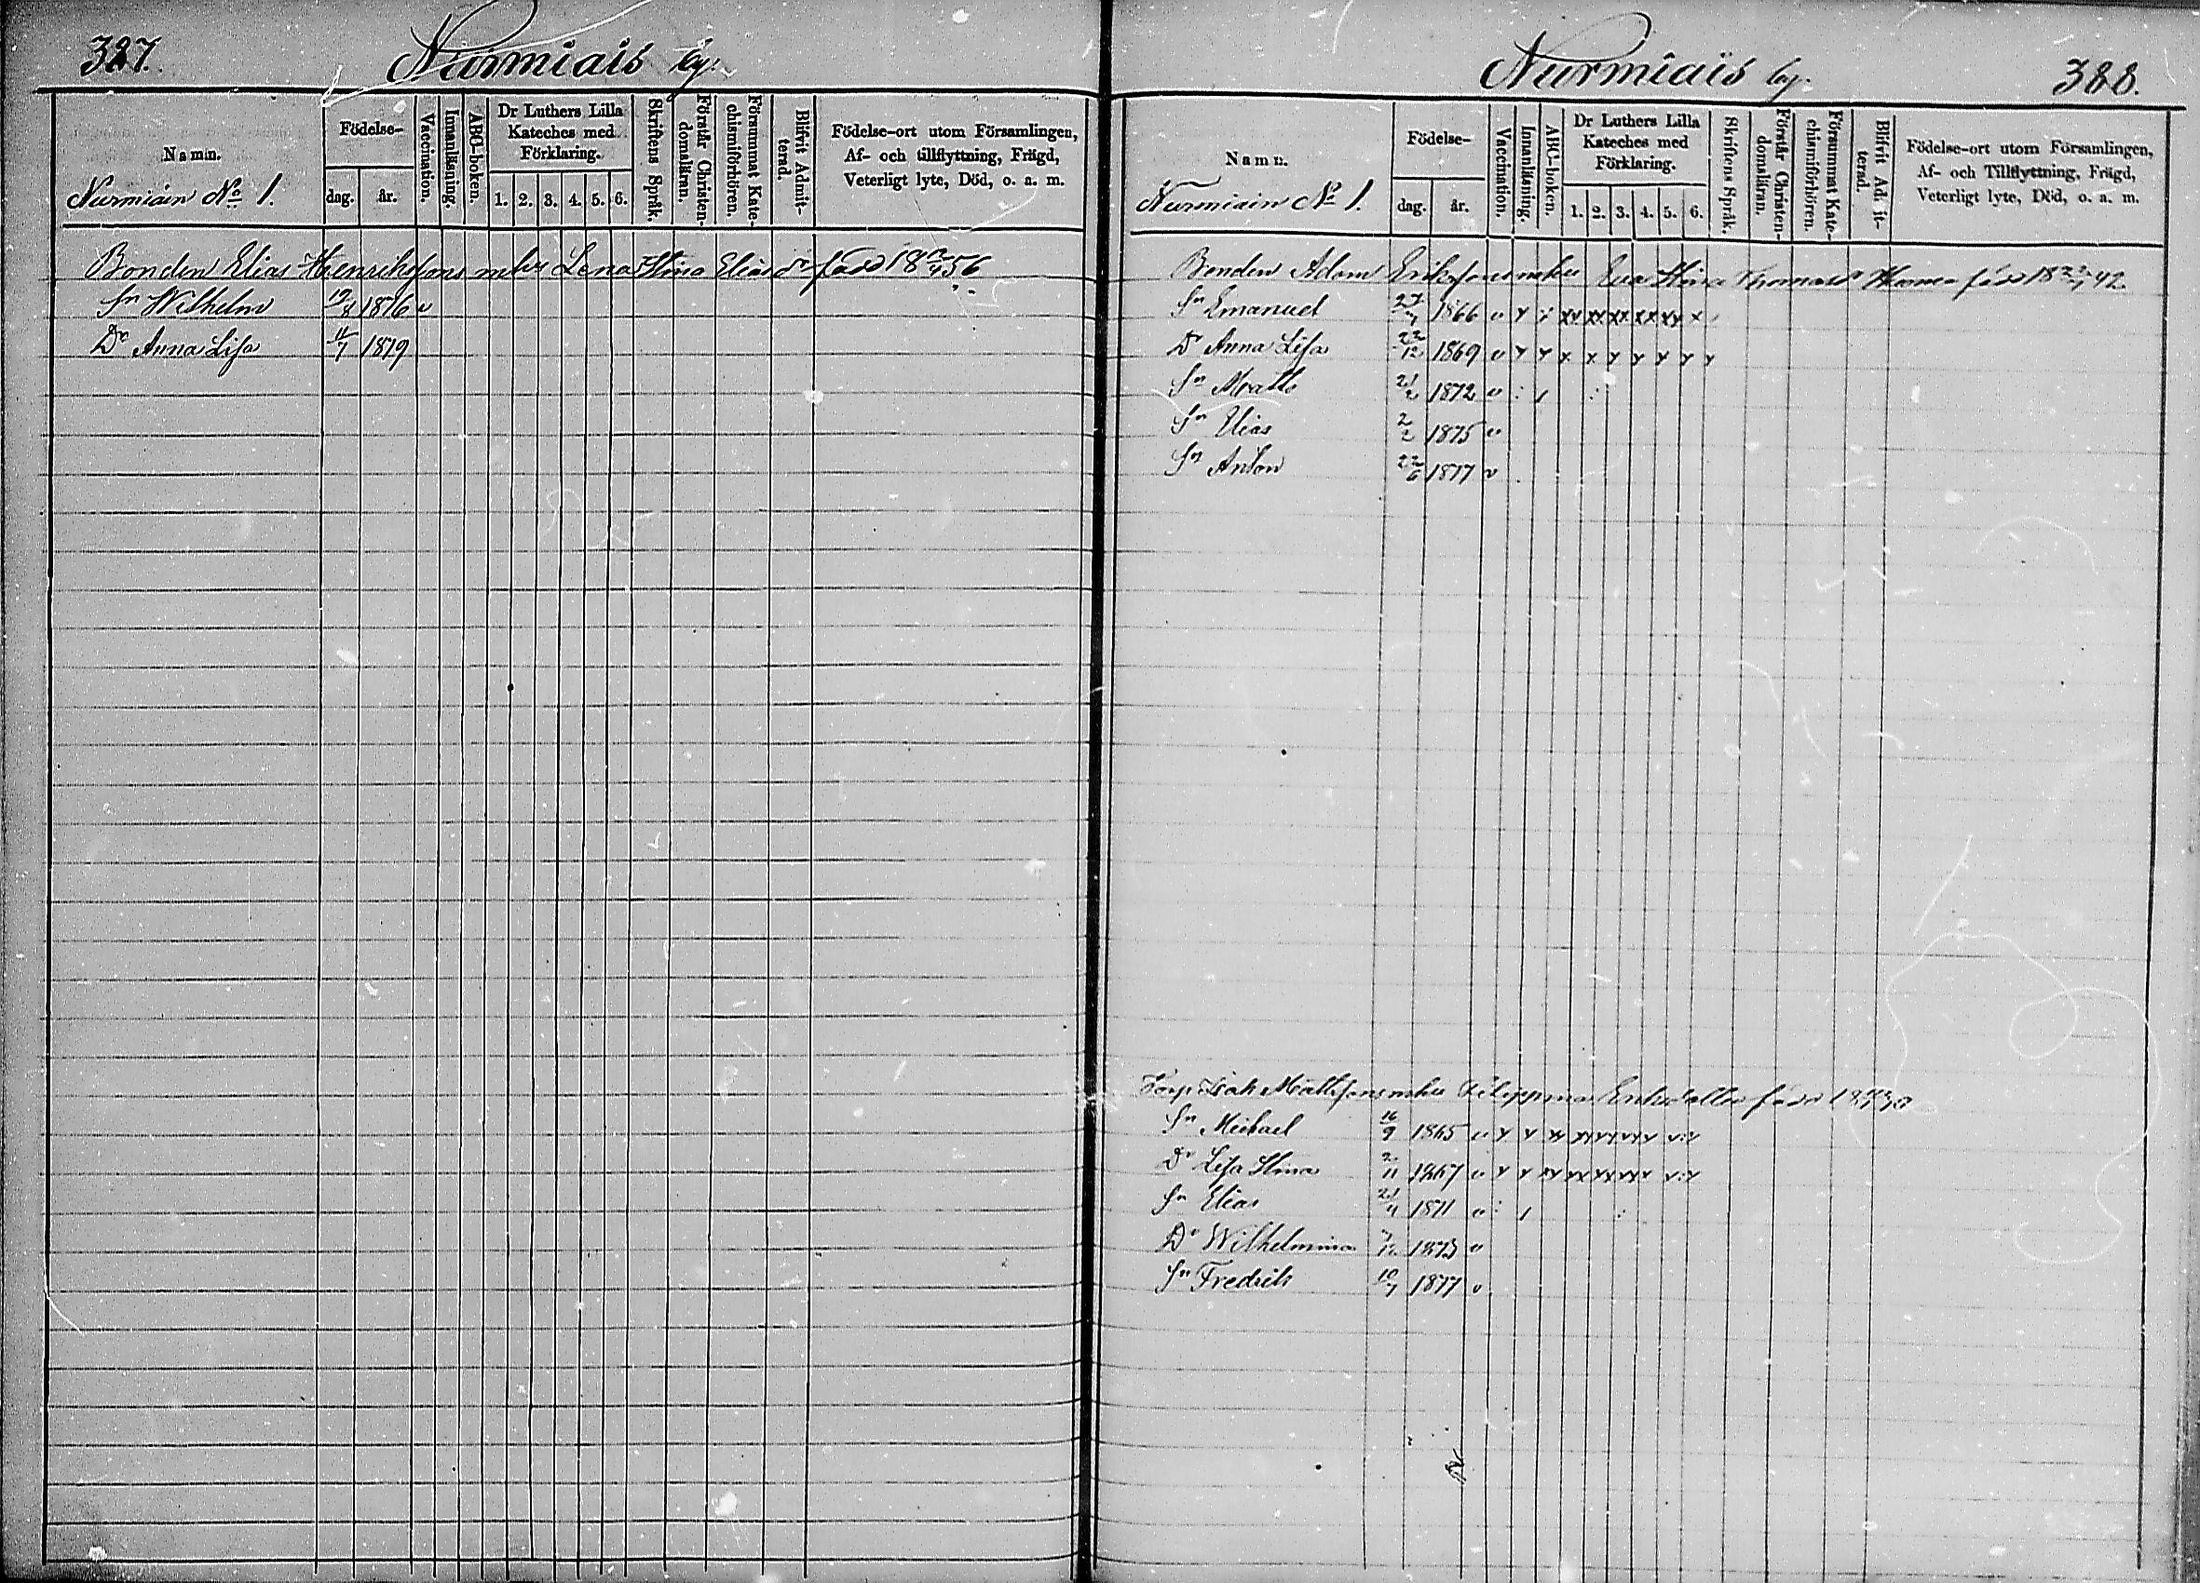 327.
Nurmiais by.
Namn.
Födelse-
dag.
år.
Vaccination.
Innanläsning.
ABC-boken.
Dr Luthers Lilla
Kateches med
Förklaring.
1. 2. 3. 4. 5. 6.
Skriftens Språk.
Förstår Christen-
domsläran.
Försummat Kate-
chismiförhören.
Blifvit Admit-
terad.
Födelse-ort utom Församlingen,
Af- och tillflyttning, Frägd,
Veterligt lyte, Död, o. a. m.
Nurmiain No 1.
Bonden Elias Henriksons Lena Stina Elias dr född 18 56
Sn Wilhelm 19/8 1876 v
Dr Anna Lisa 11/7 1879
Nurmiais by.
388.
Namn.
Födelse-
dag.
år.
Vaccination.
Innanläsning.
ABC-boken.
Dr Luthers Lilla
Kateches med
Förklaring.
1. 2. 3. 4. 5. 6.
Skriftens Språk.
Förstår Christen-
domsläran.
Försummat Kate-
chismiförhören.
Blifvit Ad. it-
terad.
Födelse-ort utom Församlingen,
Af- och Tillflyttning, Frägd,
Veterligt lyte, Död, o. a. m.
Nurmiain No 1.
Bonden Adam Eriksons Eva Stina Thomasdr född 18 42
Sn Emanuel 27/7 1866 v
Dr Anna Lisa 22/12 1869 v
Sn Matts 21/2 1872 v
Sn Elias 2/2 1875 v
Sn Anton 22/6 1877 v
Torp. Isak Mattsons Filippina född 18
Sn Michael 16/9 1865 v
Dr Lisa Stina 2/11 1867 v
Sn Elias 21/4 1871 v
Dr Wilhelmina 7/12 1873 v
Sn Fredrik 10/7 1877 v